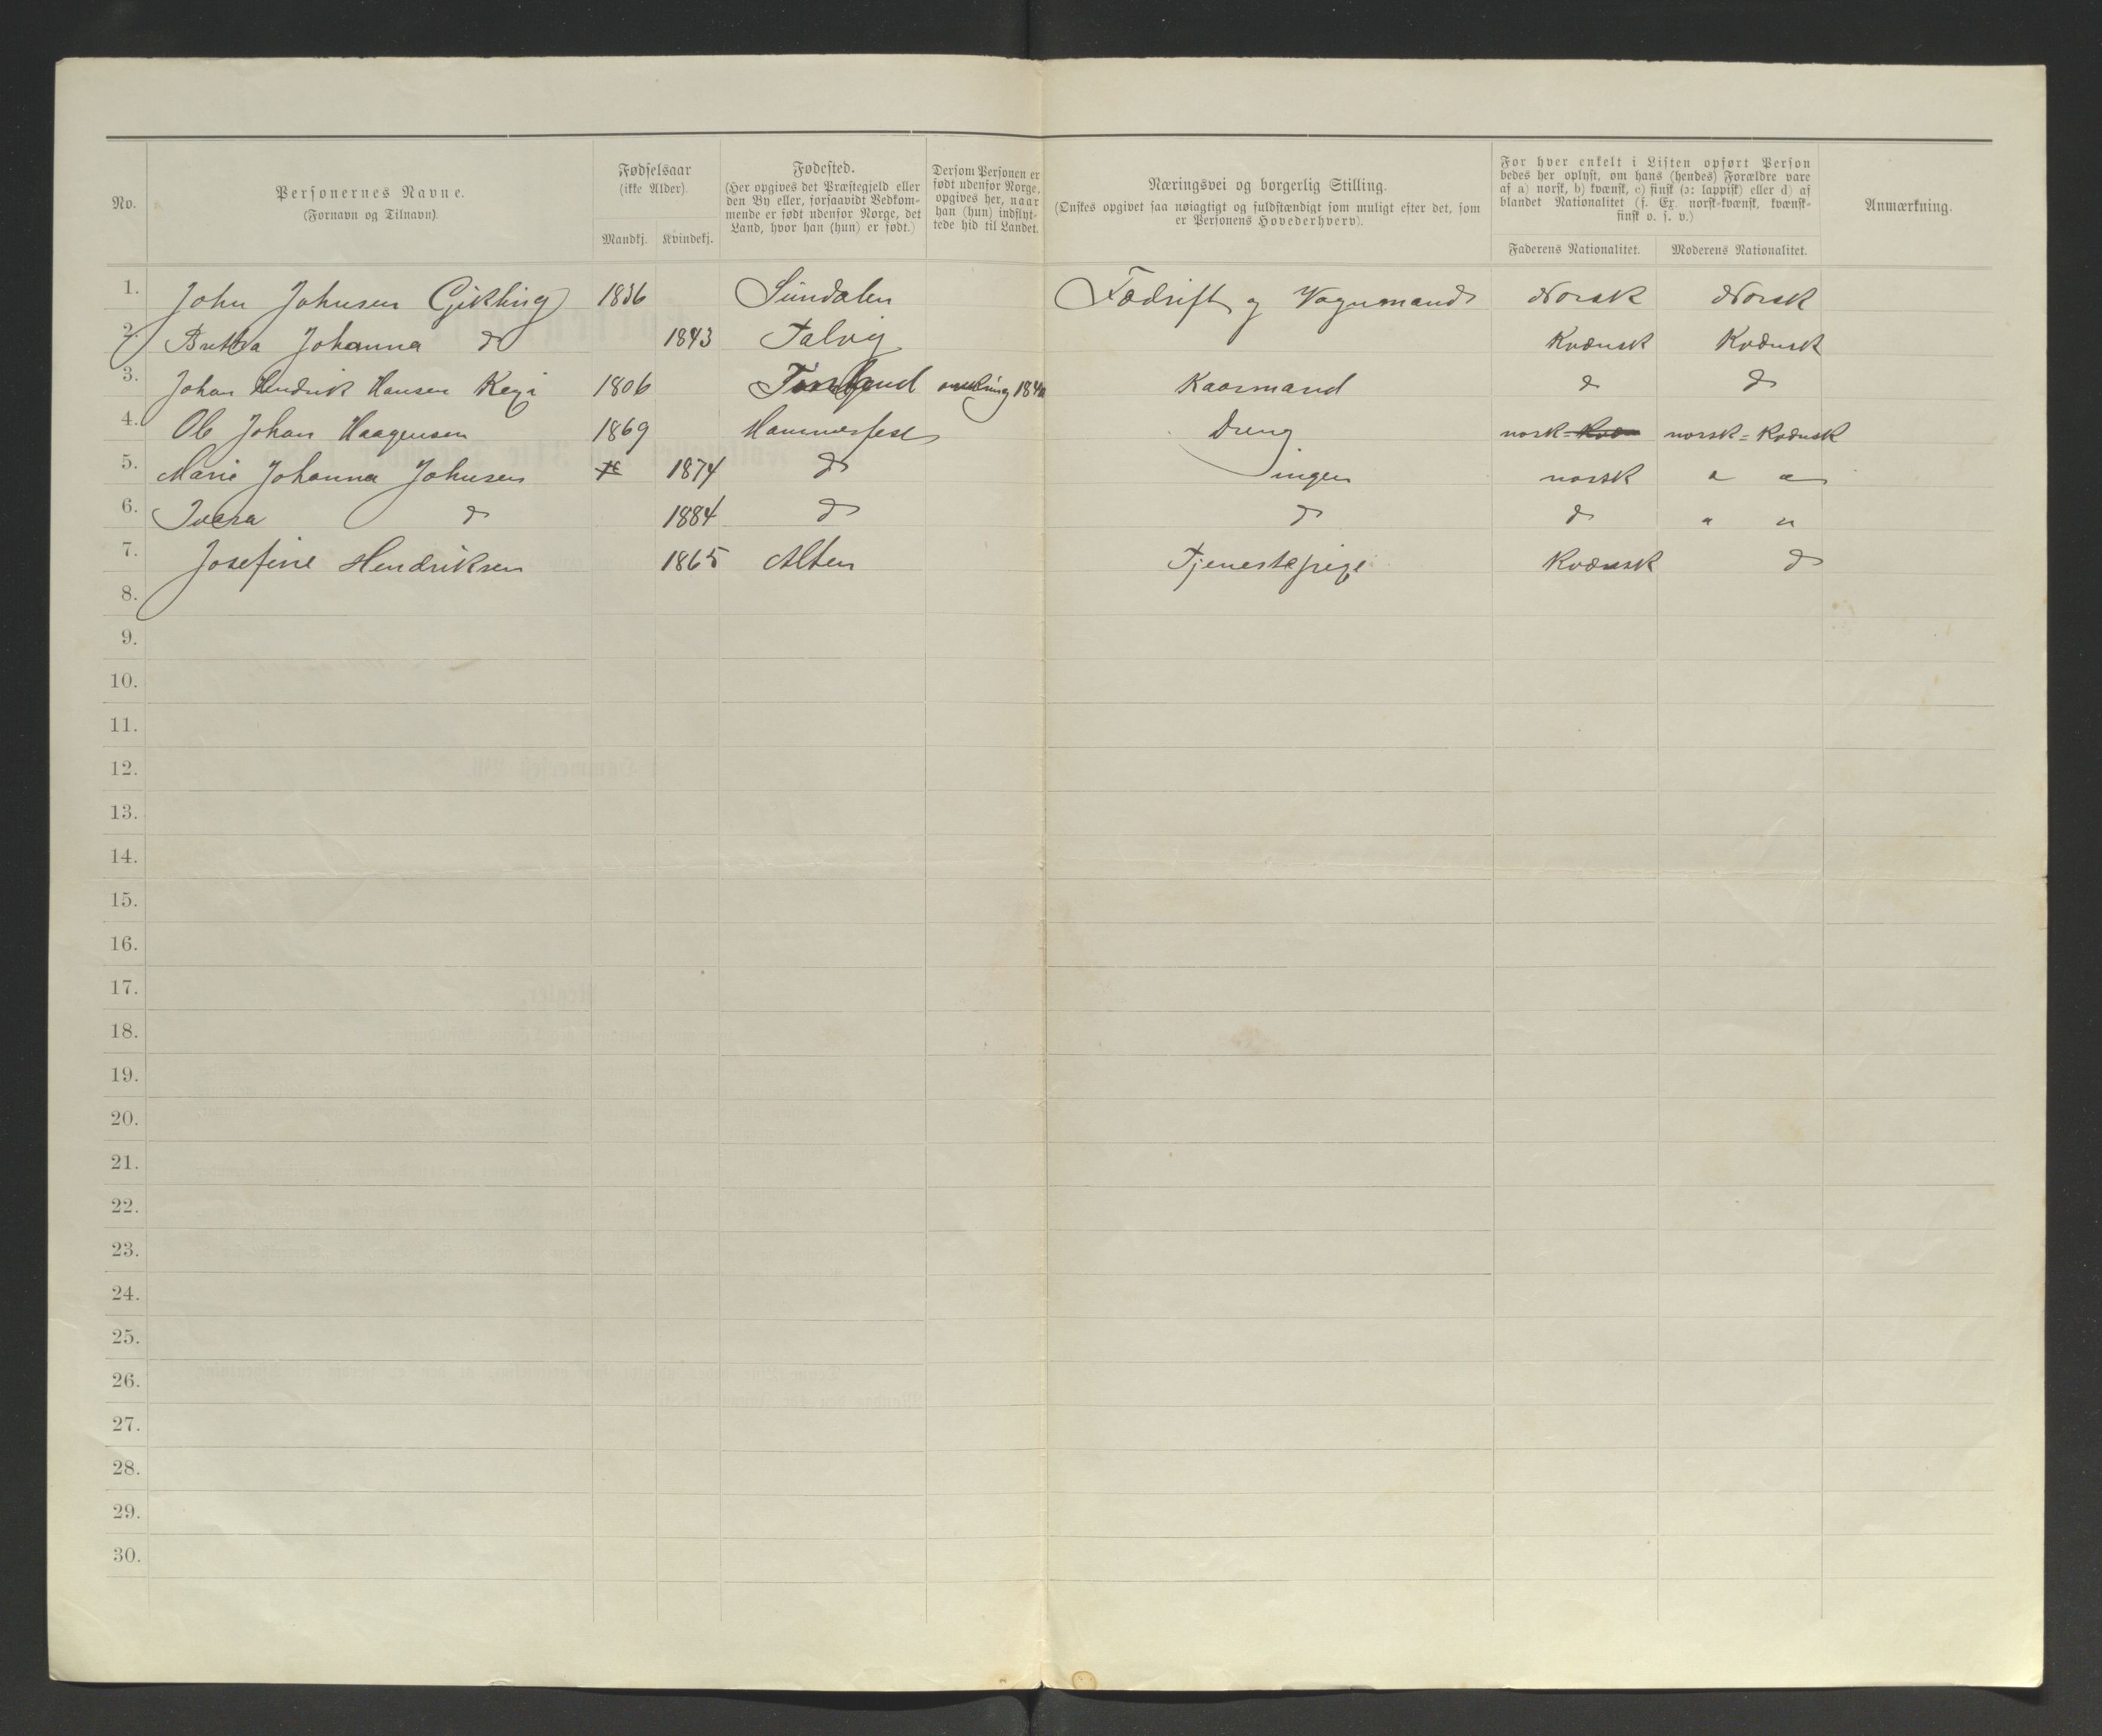 No.
Personernes Navne.
(Fornavn og Tilnavn).
Fødselsaar
(ikke Alder).
Mandkj. Kvindekj.
Fødested.
(Her opgives det Præstegjeld eller
den By eller, forsaavidt Vedkom-
mende er født udenfor Norge, det
Land, hvor han (hun) er født.)
Dersom Personen er
født udenfor Norge,
opgives her, naar
han (hun) indflyt-
tede hid til Landet.
Næringsvei og borgerlig Stilling.
(Ønskes opgivet saa nøiagtigt og fuldstændigt som muligt efter det, som
er Personens Hovederhverv).
For hver enkelt i Listen opført Person
bedes her oplyst, om hans (hendes) Forældre vare
af a) norsk, b) kvænsk, c) finsk (ɔ: lappisk) eller d) af
blandet Nationalitet (f. Ex. norsk-kvænsk, kvænsk-
finsk o. s. v.)
Faderens Nationalitet. Moderens Nationalitet.
Anmærkning.
1. John Johnsen Gikling 1836 Sundalen Fædrift og Vognmand Norsk Norsk
2. Johanna do 1843 Talvig Kvænsk Kvænsk
3. Johan Hendrik Hansen 1806 Finland omkring 184 Kaarmand do do
4. Ole Johan Haagensen 1869 Hammerfest Dreng norsk= norsk=Kvænsk
5. Marie Johanna Johnsen 1874 do ingen norsk " "
6. do 1884 do do do " "
7. Josefine Hendriksen 1865 Alten Tjenestepige Kvænsk do
8.
9.
10.
11.
12.
13.
14.
15.
16.
17.
18.
19.
20.
21.
22.
23.
24.
25.
26.
27.
28.
29.
30.